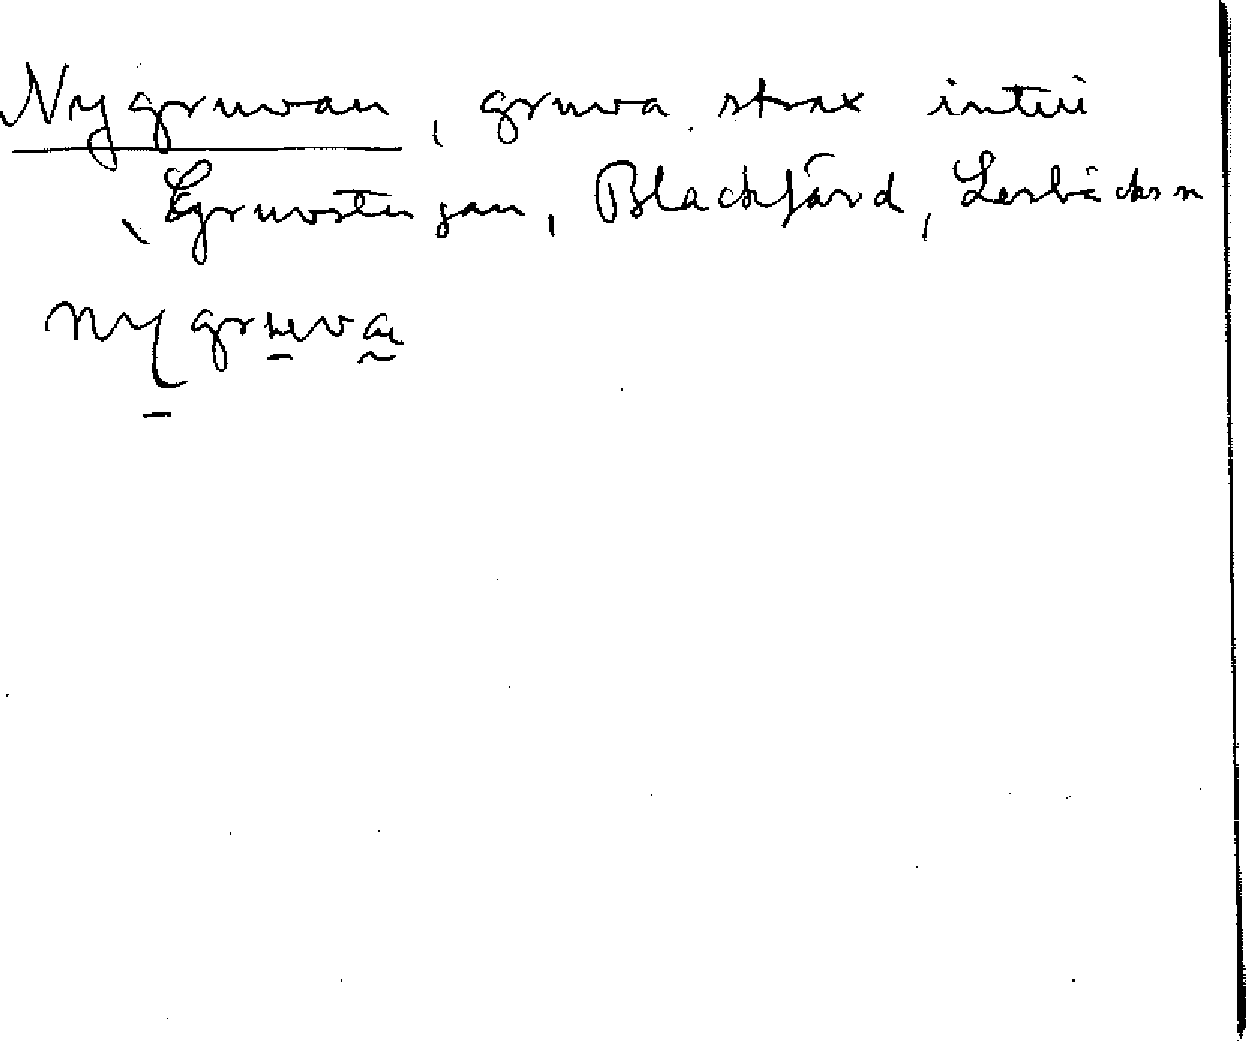 Nygruvan, gruva strax intill
Gruvstugan, Blackfärd, Lerbäcks sn
nygruva